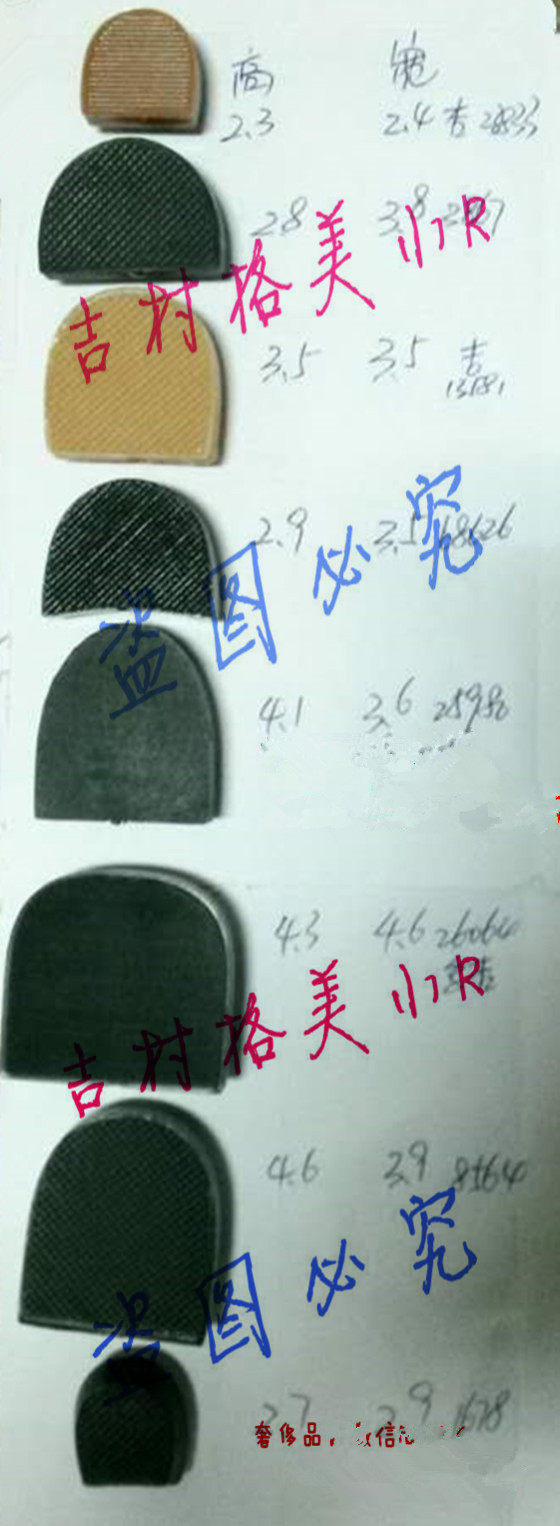 高 宽
2.3 2.4 吉
2.8 3.8
吉村格美小R
3.5 3.5 吉
2.9 3.5 68626
盗图必究
4.1 3.6 25980
4.3 4.6 26064
吉村格美小R
4.6 3.9 8564
盗图必究
2.7 2.9 1678
奢侈品,